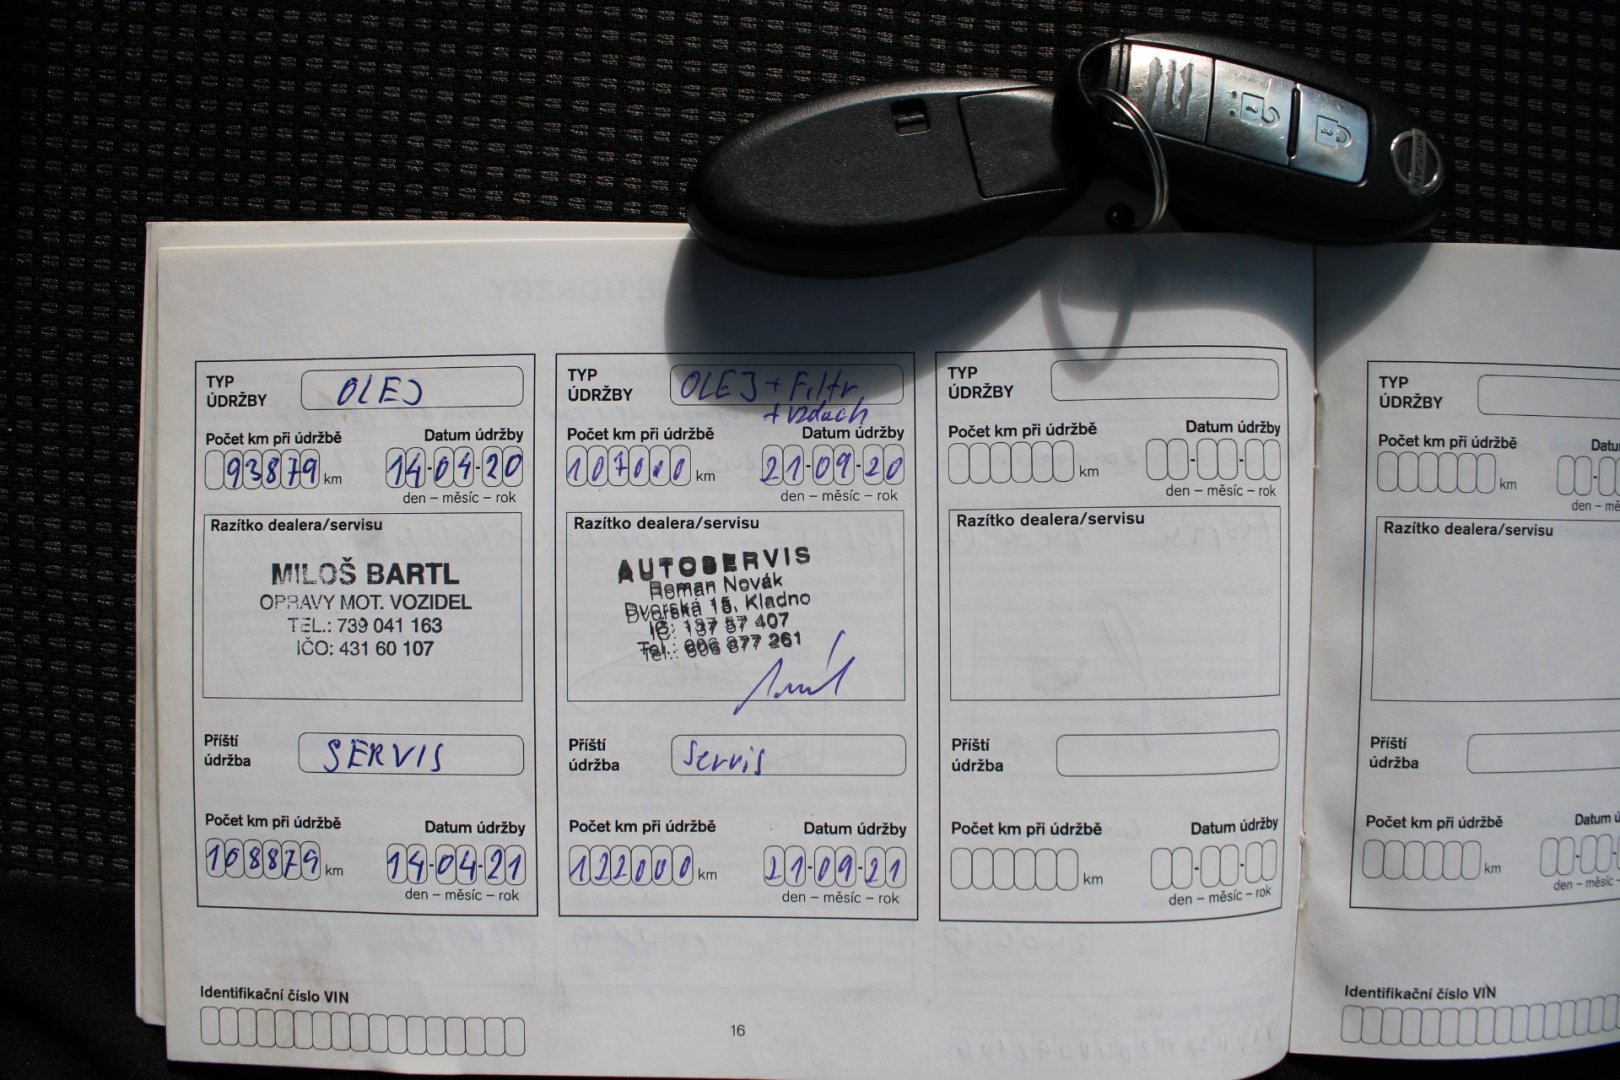 NISSAN
TYP
ÚDRŽBY
OLEJ
Počet km při údržbě
Datum údržby
93879 km
14-04-20
den – měsíc – rok
Razítko dealera/servisu
MILOŠ BARTL
OPRAVY MOT. VOZIDEL
TEL.: 739 041 163
IČO: 431 60 107
Příští
údržba
SERVIS
Počet km při údržbě
Datum údržby
108879 km
14-04-21
den – měsíc – rok
TYP
ÚDRŽBY
OLEJ + Filtr
+ vzduch
Počet km při údržbě
Datum údržby
107000 km
21-09-20
den – měsíc – rok
Razítko dealera/servisu
AUTOSERVIS
Roman Novák
Dvorská 15, Kladno
IČ: 137 57 407
Tel.: 606 877 261
Příští
údržba
Servis
Počet km při údržbě
Datum údržby
122000 km
21-09-21
den – měsíc – rok
TYP
ÚDRŽBY
Počet km při údržbě
Datum údržby
km
den – měsíc – rok
Razítko dealera/servisu
Příští
údržba
Počet km při údržbě
Datum údržby
km
den – měsíc – rok
Identifikační číslo VIN
16
TYP
ÚDRŽBY
Počet km při údržbě
Datu
km
den – mě
Razítko dealera/servisu
Příští
údržba
Počet km při údržbě
Datum ú
km
den – měsíc –
Identifikační číslo VIN